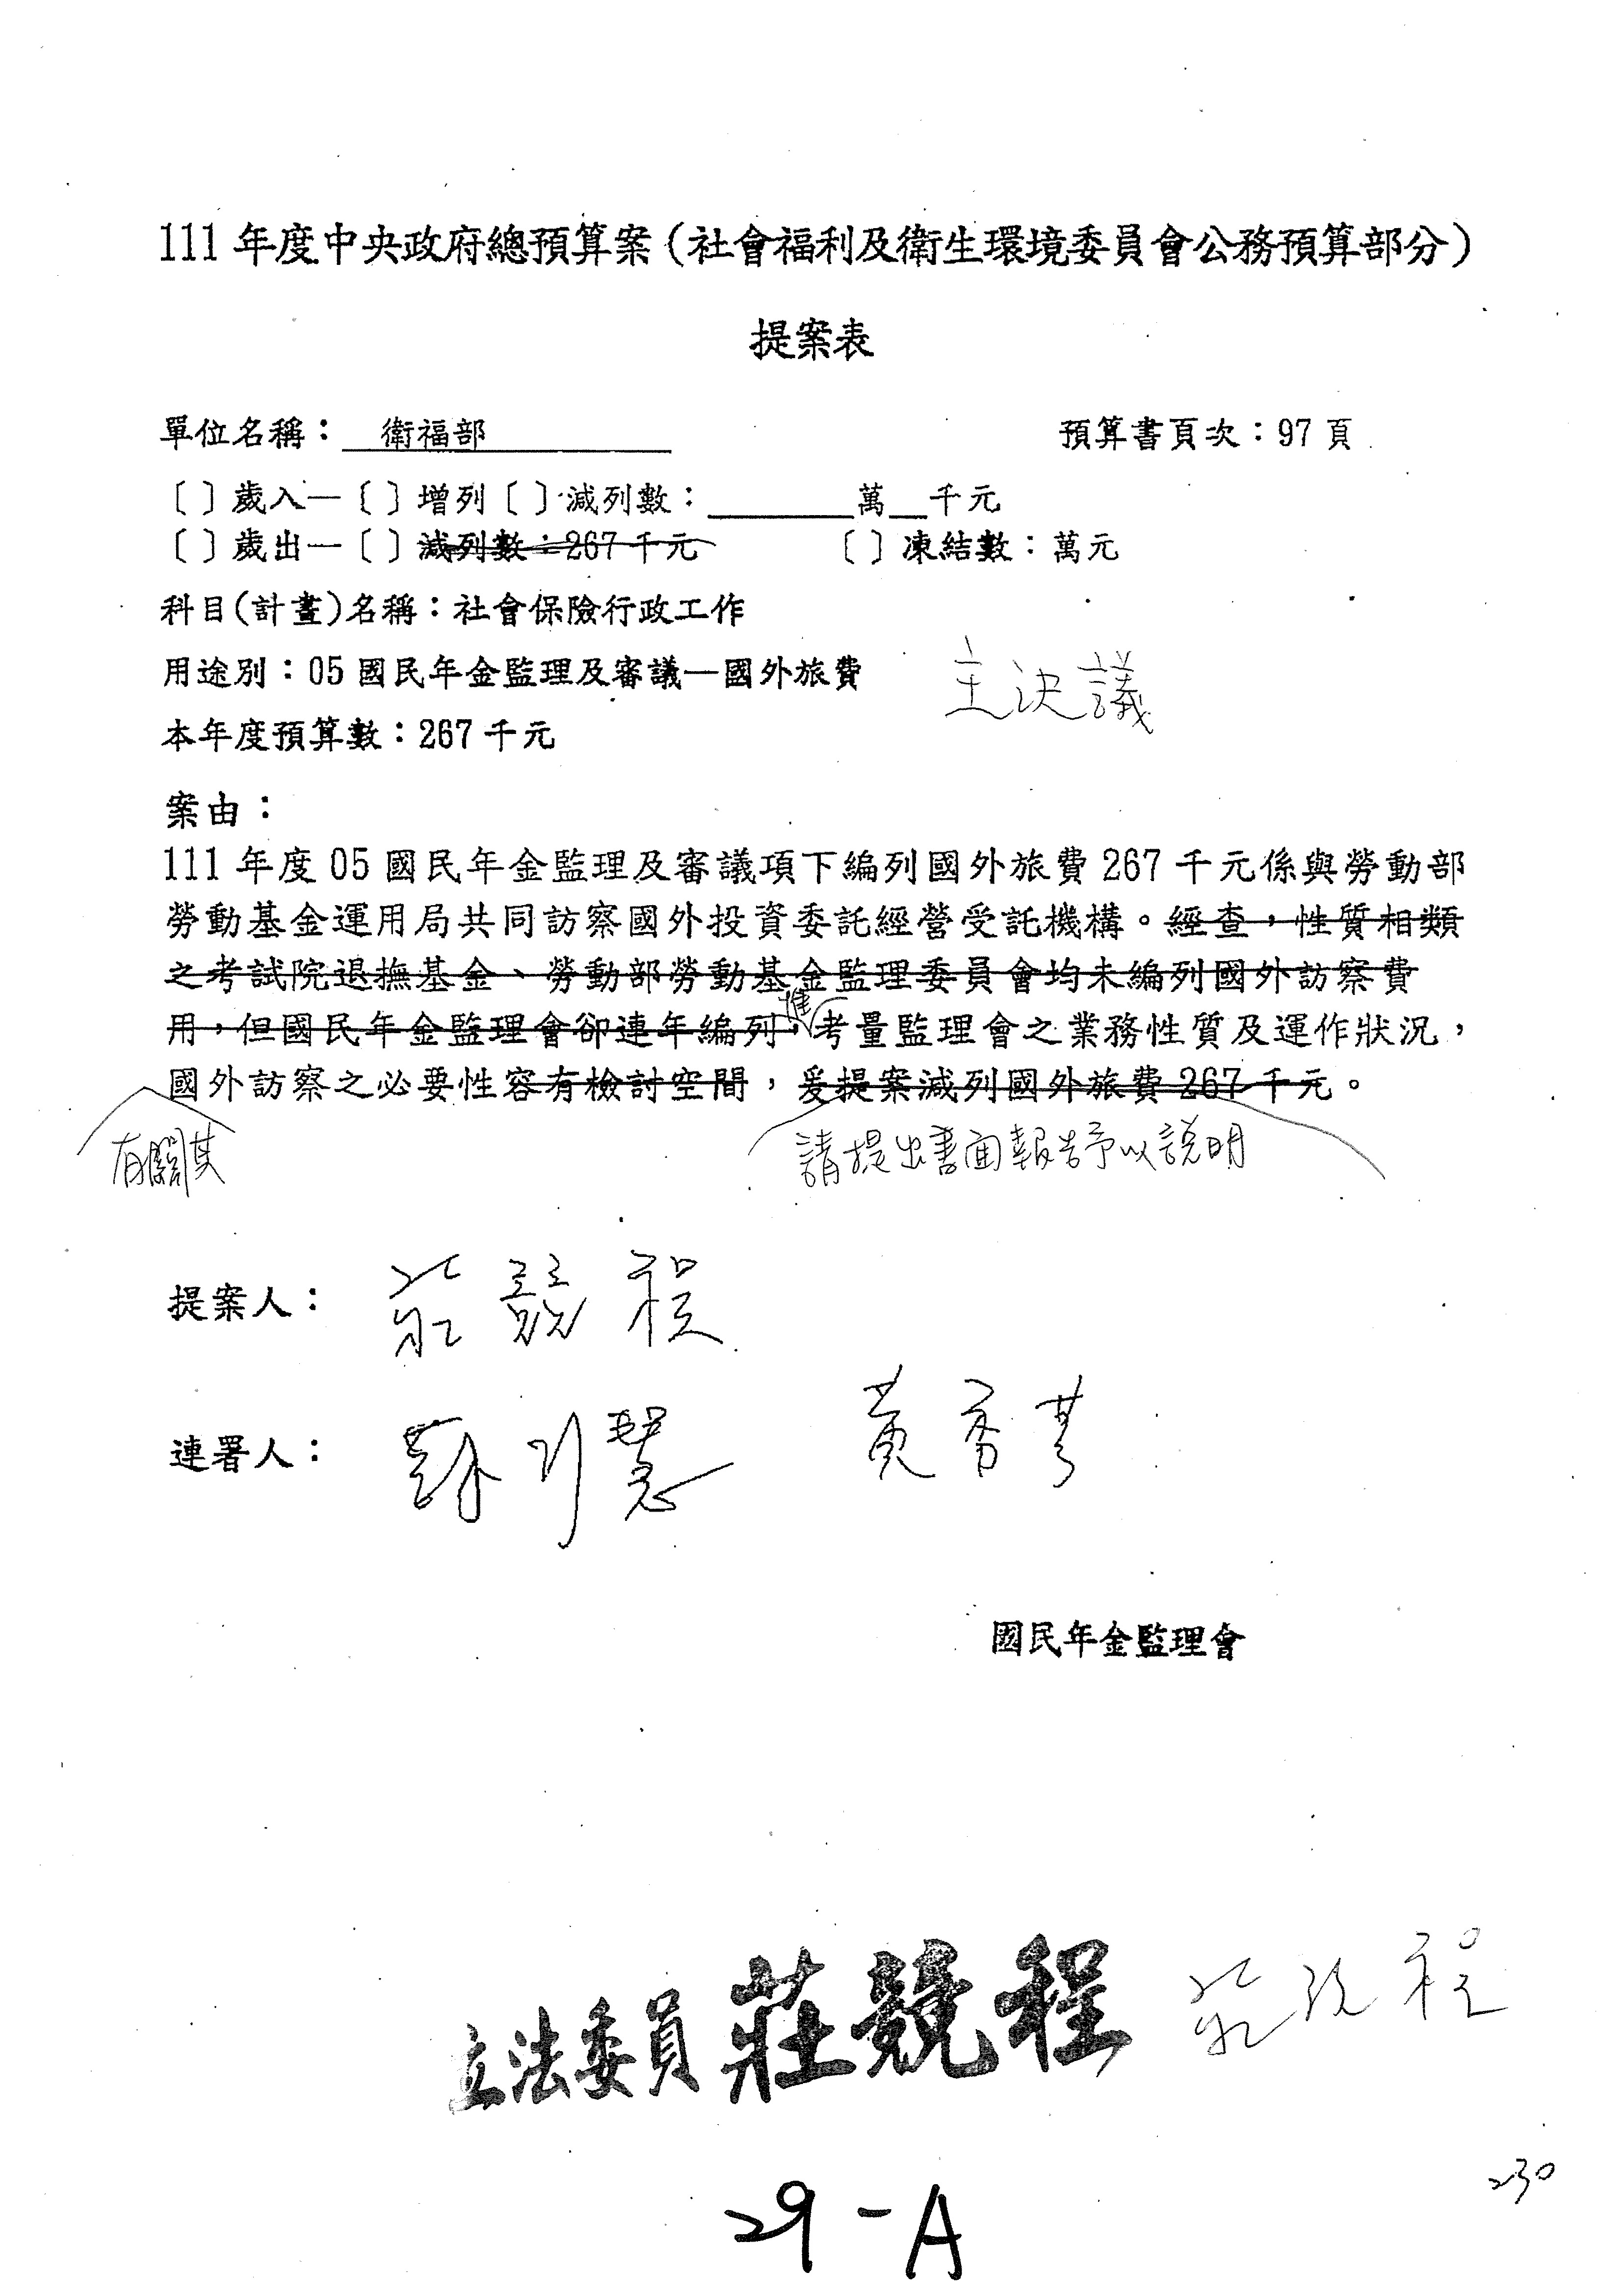 111年度中央政府總預算案（社會福利及衛生環境委員會公務預算部分）
提案表
單位名稱：衛福部 預算書頁次：97頁
〔〕歲入—〔〕增列〔〕減列數：________萬__千元
〔〕歲出—〔〕減列數：267千元 〔〕凍結數：萬元
科目(計畫)名稱：社會保險行政工作
用途別：05國民年金監理及審議—國外旅費
主決議
本年度預算數：267千元
案由：
111年度05國民年金監理及審議項下編列國外旅費267千元係與勞動部
勞動基金運用局共同訪察國外投資委託經營受託機構。經查，性質相類
之考試院退撫基金、勞動部勞動基金監理委員會均未編列國外訪察費
用，但國民年金監理會卻連年編列，惟考量監理會之業務性質及運作狀況，
國外訪察之必要性容有檢討空間，爰提案減列國外旅費267千元。
有關其
請提出書面報告予以說明
提案人：莊競程
連署人：蘇巧慧 黃秀芳
國民年金監理會
立法委員 莊競程 莊競程
230
29-A